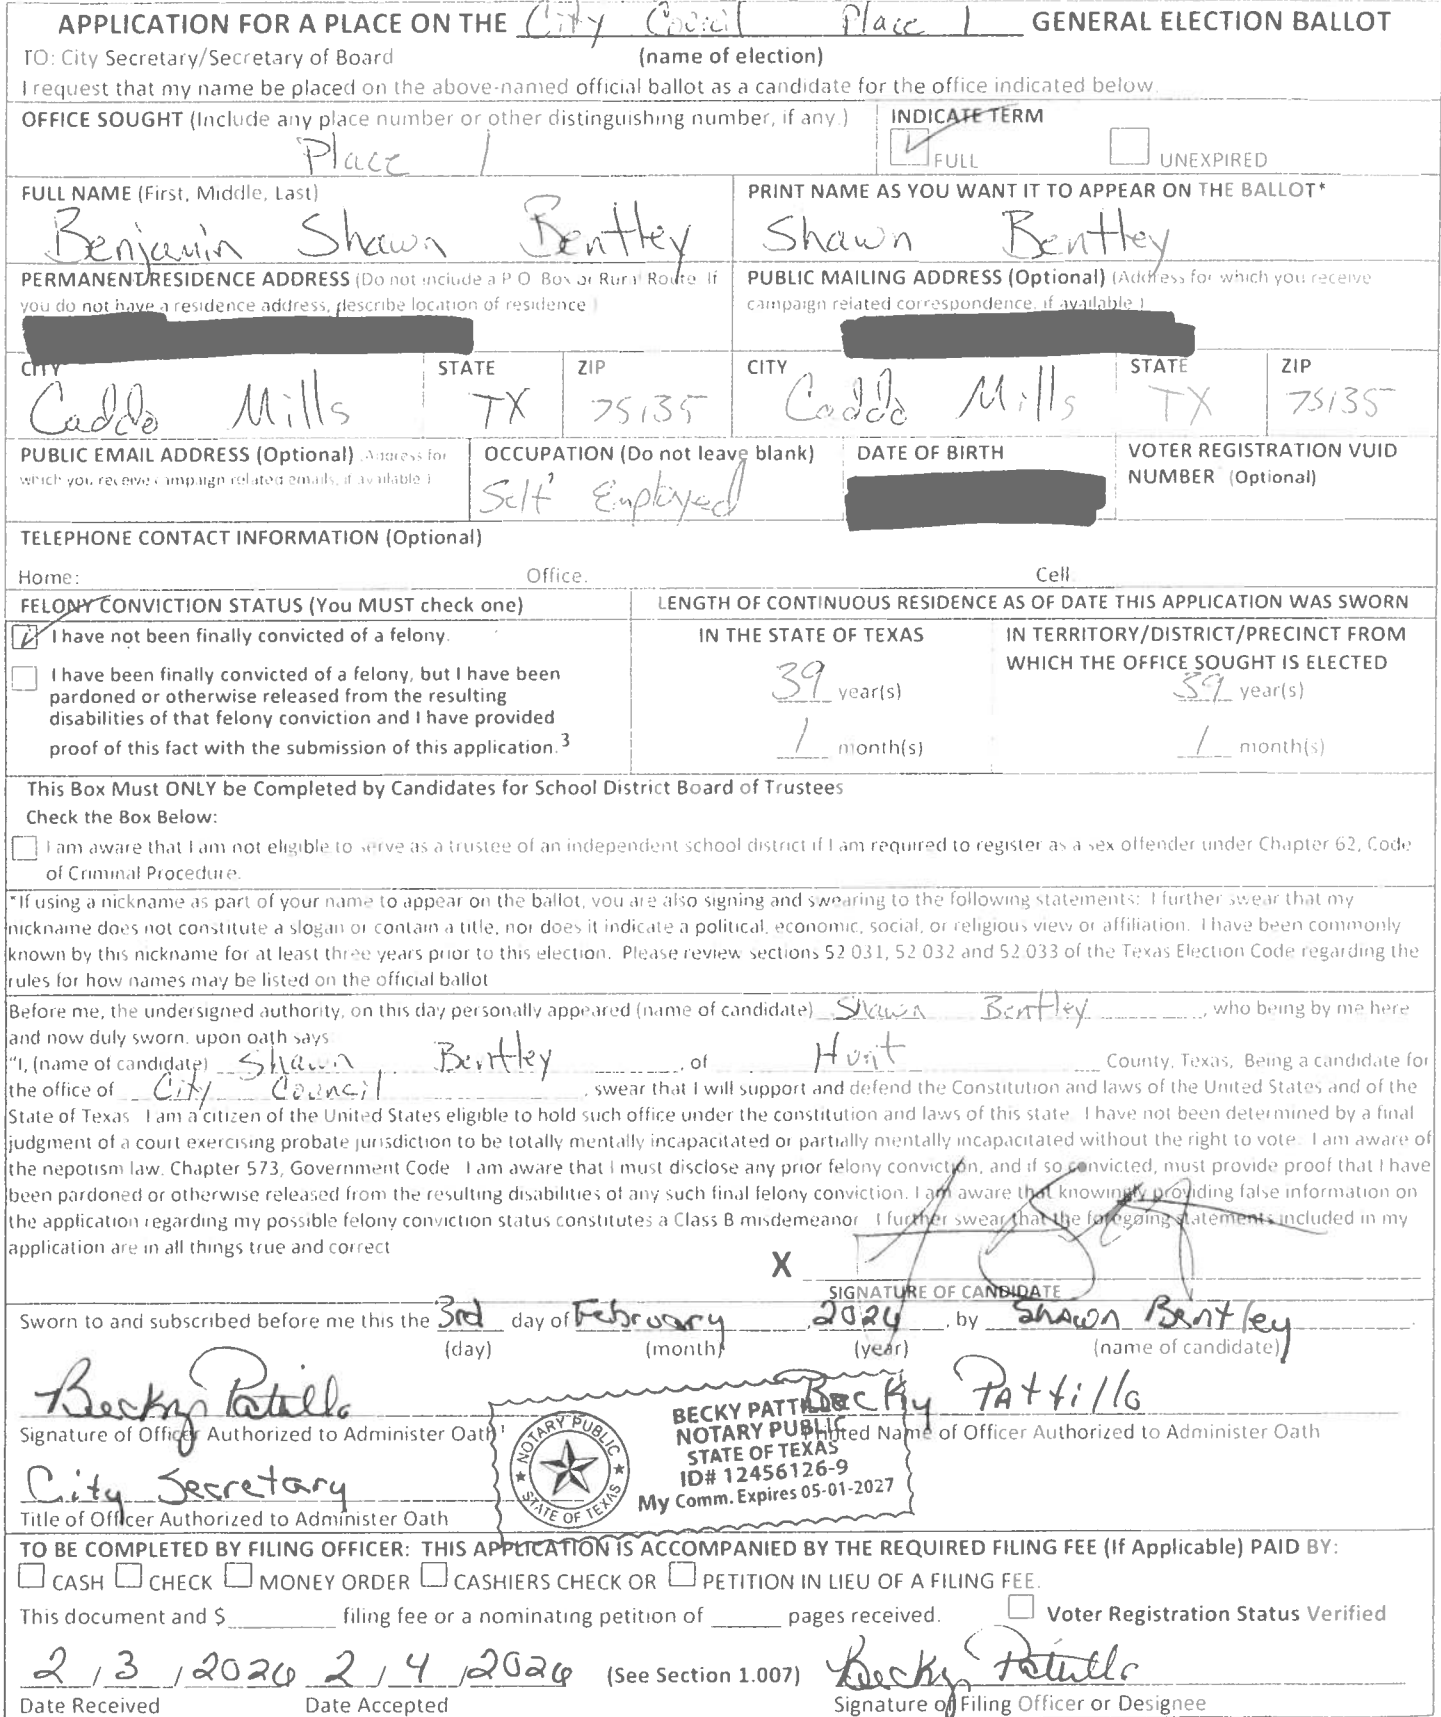 APPLICATION FOR A PLACE ON THE City Council Place 1 GENERAL ELECTION BALLOT
TO: City Secretary/Secretary of Board (name of election)
I request that my name be placed on the above-named official ballot as a candidate for the office indicated below.
OFFICE SOUGHT (Include any place number or other distinguishing number, if any.) INDICATE TERM
Place 1 FULL UNEXPIRED
FULL NAME (First, Middle, Last) PRINT NAME AS YOU WANT IT TO APPEAR ON THE BALLOT*
Benjamin Shawn Bentley Shawn Bentley
PERMANENT RESIDENCE ADDRESS (Do not include a P O Box or Rural Route. If PUBLIC MAILING ADDRESS (Optional) (Address for which you receive
you do not have a residence address, describe location of residence ) campaign related correspondence, if available )
CITY STATE ZIP CITY STATE ZIP
Caddo Mills TX 75135 Caddo Mills TX 75135
PUBLIC EMAIL ADDRESS (Optional) (Address for OCCUPATION (Do not leave blank) DATE OF BIRTH VOTER REGISTRATION VUID
which you receive campaign related emails, if available ) Self Employed NUMBER (Optional)
TELEPHONE CONTACT INFORMATION (Optional)
Home: Office. Cell
FELONY CONVICTION STATUS (You MUST check one) LENGTH OF CONTINUOUS RESIDENCE AS OF DATE THIS APPLICATION WAS SWORN
I have not been finally convicted of a felony. IN THE STATE OF TEXAS IN TERRITORY/DISTRICT/PRECINCT FROM
WHICH THE OFFICE SOUGHT IS ELECTED
I have been finally convicted of a felony, but I have been
pardoned or otherwise released from the resulting 39 year(s) 39 year(s)
disabilities of that felony conviction and I have provided
proof of this fact with the submission of this application.3 1 month(s) 1 month(s)
This Box Must ONLY be Completed by Candidates for School District Board of Trustees
Check the Box Below:
I am aware that I am not eligible to serve as a trustee of an independent school district if I am required to register as a sex offender under Chapter 62, Code
of Criminal Procedure.
*If using a nickname as part of your name to appear on the ballot, you are also signing and swearing to the following statements: I further swear that my
nickname does not constitute a slogan or contain a title, nor does it indicate a political, economic, social, or religious view or affiliation. I have been commonly
known by this nickname for at least three years prior to this election. Please review sections 52 031, 52 032 and 52 033 of the Texas Election Code regarding the
rules for how names may be listed on the official ballot
Before me, the undersigned authority, on this day personally appeared (name of candidate) Shawn Bentley, who being by me here
and now duly sworn, upon oath says
"I, (name of candidate) Shawn Bentley, of Hunt County, Texas, Being a candidate for
the office of City Council, swear that I will support and defend the Constitution and laws of the United States and of the
State of Texas I am a citizen of the United States eligible to hold such office under the constitution and laws of this state I have not been determined by a final
judgment of a court exercising probate jurisdiction to be totally mentally incapacitated or partially mentally incapacitated without the right to vote. I am aware of
the nepotism law. Chapter 573, Government Code I am aware that I must disclose any prior felony conviction, and if so convicted, must provide proof that I have
been pardoned or otherwise released from the resulting disabilities of any such final felony conviction. I am aware that knowingly providing false information on
the application regarding my possible felony conviction status constitutes a Class B misdemeanor I further swear that the foregoing statements included in my
application are in all things true and correct
X
SIGNATURE OF CANDIDATE
Sworn to and subscribed before me this the 3rd day of February, 2026, by Shawn Bentley.
(day) (month) (year) (name of candidate)
Becky Pattillo Becky Pattillo
Signature of Officer Authorized to Administer Oath Printed Name of Officer Authorized to Administer Oath
NOTARY PUBLIC STATE OF TEXAS
BECKY PATTILLO
NOTARY PUBLIC
STATE OF TEXAS
ID# 12456126-9
My Comm. Expires 05-01-2027
City Secretary
Title of Officer Authorized to Administer Oath
TO BE COMPLETED BY FILING OFFICER: THIS APPLICATION IS ACCOMPANIED BY THE REQUIRED FILING FEE (If Applicable) PAID BY:
CASH CHECK MONEY ORDER CASHIERS CHECK OR PETITION IN LIEU OF A FILING FEE.
This document and $ filing fee or a nominating petition of pages received. Voter Registration Status Verified
2/3/2026 2/4/2026 (See Section 1.007) Becky Pattillo
Date Received Date Accepted Signature of Filing Officer or Designee